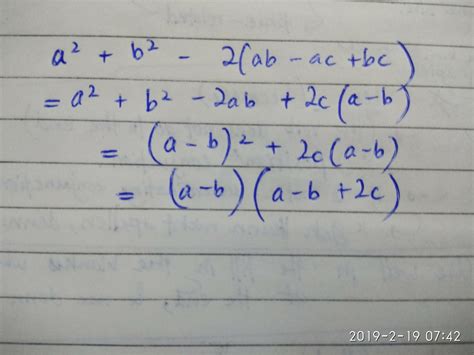 a² + b² - 2(ab - ac + bc)
= a² + b² - 2ab + 2c(a-b)
= (a-b)² + 2c(a-b)
= (a-b)(a-b+2c)
2019-2-19 07:42